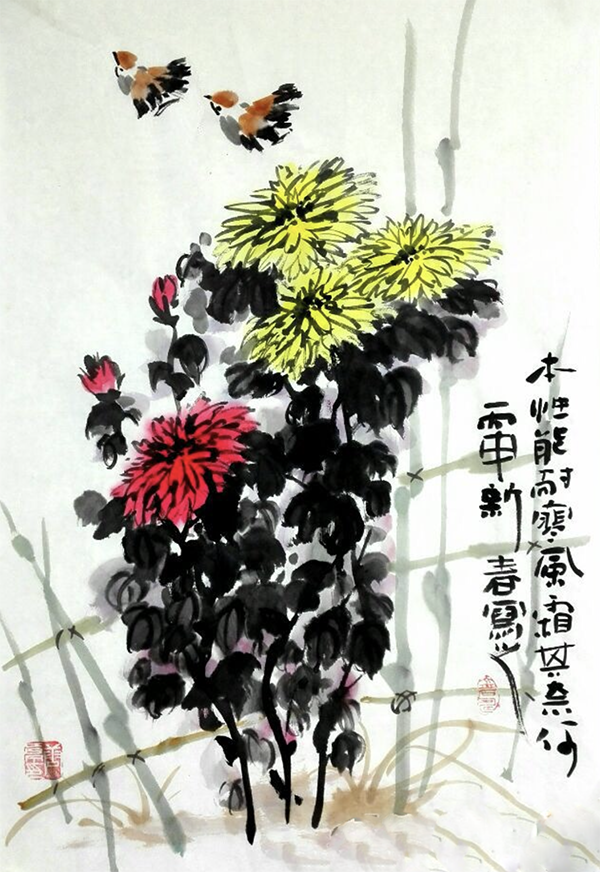 本性能耐寒風霜其奈何
丙申新春寫